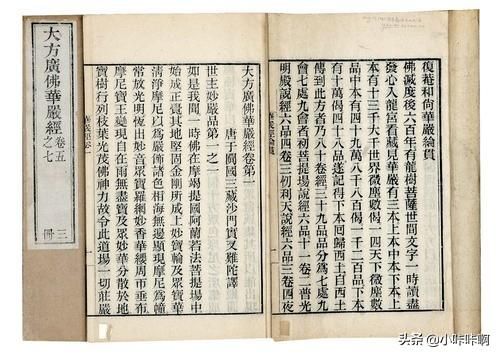 復菴和尚華嚴綸貫
佛滅度後六百年有龍樹菩薩世間文字一時讀盡
發心入龍宮看藏見華嚴有三本中本下本上
本有十三千大千世界微塵數偈一四天下微塵數
品中本有四十九萬八千八百偈一千二百品下本
有十萬偈四十八品遂記得下本回歸西土自西土
傳到此方者乃八十卷經三十九品品分爲七處九
會七處九會者初菩提場說經六品十一卷二普光
明殿說經六品四卷三忉利天說經六品三卷四夜
大方廣佛華嚴經卷第一
唐于闐國三藏沙門實叉難陀譯
世主妙嚴品第一之一
如是我聞一時佛在摩竭提國阿蘭若法菩提場中
始成正覺其地堅固金剛所成上妙寶輪及眾寶華
清淨摩尼以爲嚴飾諸色相海無邊顯現摩尼爲幢
常放光明恆出妙音眾寶羅網妙香華纓周帀垂布
摩尼寶王變現自在雨無盡寶及眾妙華分散於地
寶樹行列枝葉光茂佛神力故令此道場一切莊嚴
大方廣佛華嚴經
卷五之七
三冊
头条 @小咔咔啊